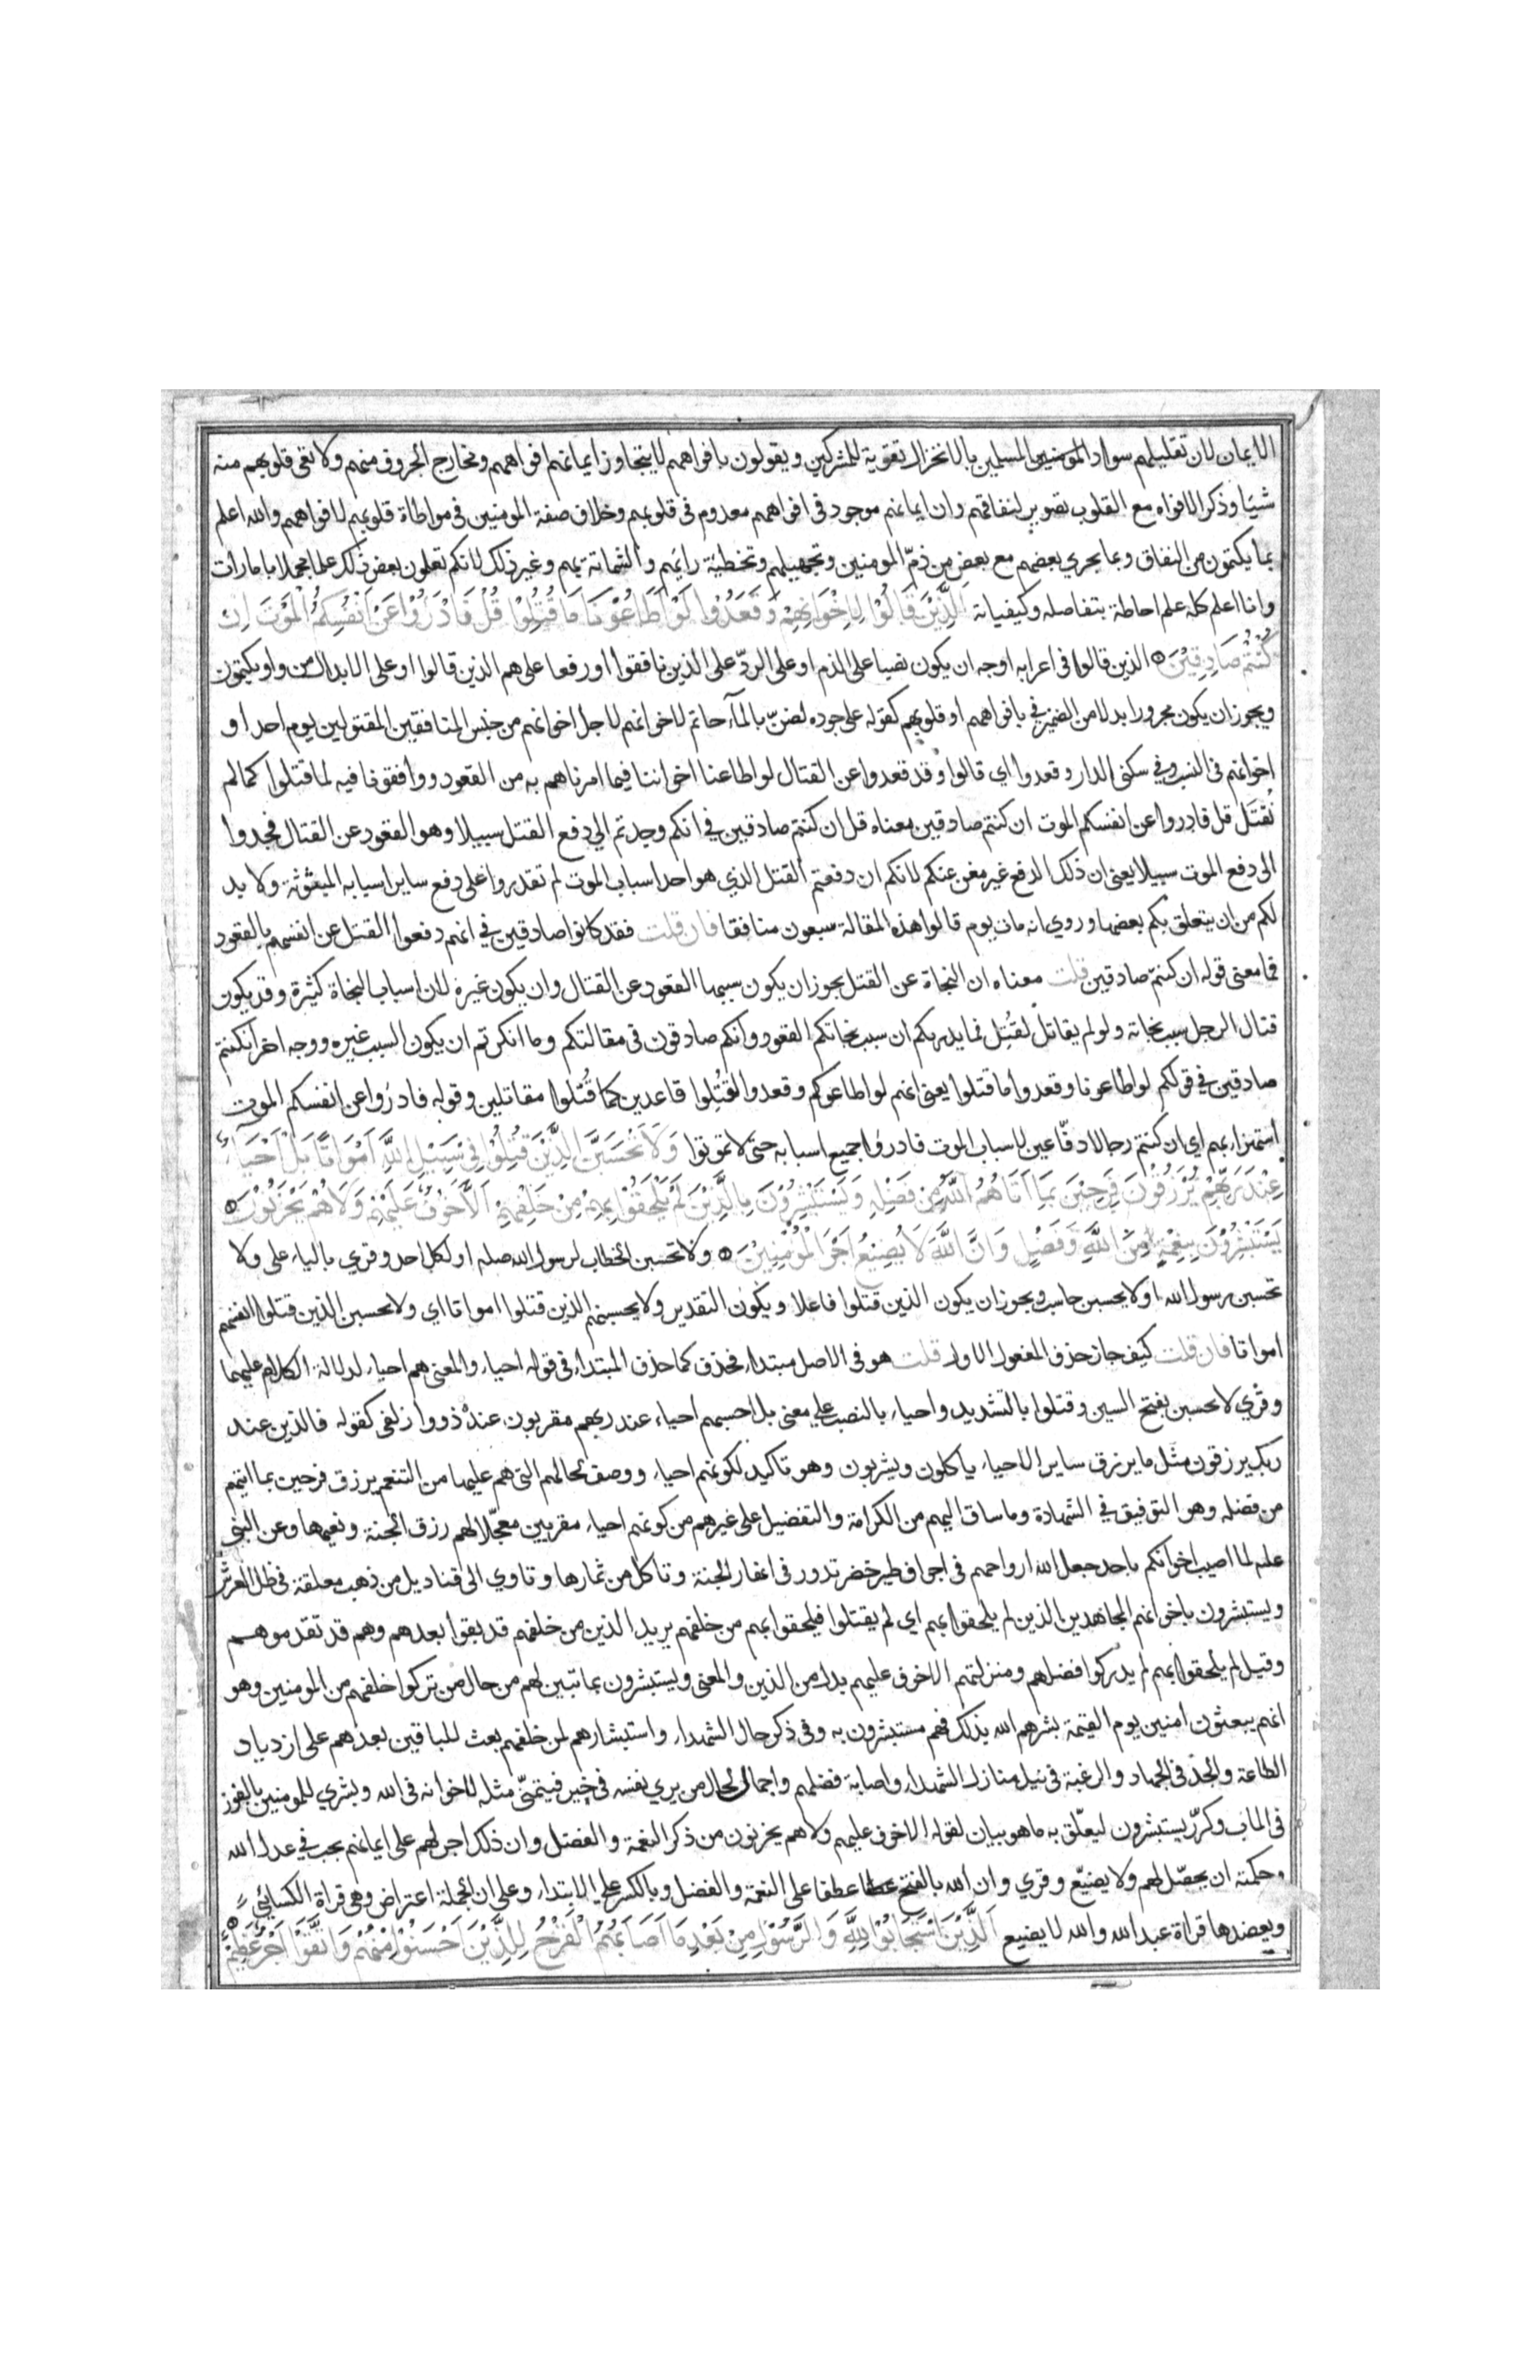 الايمان لان تقليلهم سواد المومنين المسلمين بالانخزال تقوية للمشركين ويقولون بافواههم لا يتجاوز ايمانهم افواههم ومخارج الحروف منهم ولا تعى قلوبهم منه
شيا وذكر الافواه مع القلوب تصوير لنفاقهم وان ايمانهم موجود في افواههم معدوم في قلوبهم وخلاف صفة المومنين في مواطاة قلوبهم لافواههم والله اعلم
بما يكتمون من النفاق وبما يجري بعضهم مع بعض من ذمّ المومنين وتجهيلهم وتخطيّة رايهم والشماتة بهم وغير ذلك لانكم تعلمون بعض ذلك علما مجملا بامارات
وانا اعلم كله علم احاطة بتفاصله وكيفياته الَّذِيْنَ قَالُوْا لِاِخْوَانِهِمْ وَقَعَدُوا لَوْ اَطَاعُوْنَا مَا قُتِلُوْا قُلْ فَادْرَؤُا عَنْ اَنْفُسِكُمُ الْمَوْتَ اِنْ
كُنْتُمْ صَادِقِيْنَ الذين قالوا في اعرابه اوجه ان يكون نصبا على الذم او على الردّ على الذين نافقوا او رفعا على هم الذين قالوا او على الابدال من واو يكتمون
ويجوز ان يكون مجرورا بدلا من الضمير في بافواههم او قلوبهم كقوله على جوده لضنّ بالمآء حاتم لاخوانهم لاجل اخوانهم من جنس المنافقين المقتولين يوم احد او
اخوانهم في النسب وفي سكنى الدار وقعدوا اي قالوا وقد قعدوا عن القتال لو اطاعنا اخواننا فيما امرناهم به من القعود ووافقونا فيه لما قتلوا كما لم
نُقتَل قل فادروا عن انفسكم الموت ان كنتم صادقين معناه قل ان كنتم صادقين في انكم وجدتم الي دفع القتل سبيلا وهو القعود عن القتال فجدوا
الى دفع الموت سبيلا يعني ان ذلك الدفع غير مغن عنكم لانكم ان دفعتم القتل الذي هو احد اسباب الموت لم تقدروا على دفع ساير اسبابه المبثوثة ولا بد
لكم من ان يتعلق بكم بعضها وروي انه مات يوم قالوا هذه المقالة سبعون منافقا فان قلت فقد كانوا صادقين في انهم دفعوا القتل عن انفسهم بالقعود
فما معنى قوله ان كنتم صادقين قلت معناه ان النجاة عن القتل يجوز ان يكون سببها القعود عن القتال وان يكون غيره لان اسباب النجاة كثيرة وقد يكون
قتال الرجل سبب نجاته ولو لم يقاتل لقُتِل فما يدريكم ان سبب نجاتكم القعود وانكم صادقون في مقالتكم وما انكرتم ان يكون السبب غيره ووجه اخر ان كنتم
صادقين في قولكم لو اطاعونا وقعدوا ما قتلوا يعني انهم لو اطاعوكم وقعدوا لقُتِلوا قاعدين كما قُتلوا مقاتلين وقوله فادرُوا عن انفسكم الموت
استهزاء بهم اي ان كنتم رجالا دفّاعين لاسباب الموت فادرُوا جميع اسبابه حتى لا تموتوا وَلَا تَحْسَبَنَّ الَّذِيْنَ قُتِلُوْا فِيْ سَبِيْلِ اللّٰهِ اَمْوَاتًا بَلْ اَحْيَآءٌ
عِنْدَ رَبِّهِمْ يُرْزَقُوْنَ فَرِحِيْنَ بِمَا اٰتَاهُمُ اللّٰهُ مِنْ فَضْلِهِ وَيَسْتَبْشِرُوْنَ بِالَّذِيْنَ لَمْ يَلْحَقُوْا بِهِمْ مِنْ خَلْفِهِمْ اَلَّا خَوْفٌ عَلَيْهِمْ وَلَا هُمْ يَحْزَنُوْنَ
يَسْتَبْشِرُوْنَ بِنِعْمَةٍ مِنَ اللّٰهِ وَفَضْلٍ وَاَنَّ اللّٰهَ لَا يُضِيْعُ اَجْرَ الْمُؤْمِنِيْنَ ولا تحسبن الخطاب لرسول الله صلعم او لكل احد وقري بالياء على ولا
تحسبن رسول الله او لا يحسبن حاسب ويجوز ان يكون الذين قتلوا فاعلا ويكون التقدير ولا يحسبنهم الذين قتلوا امواتا اي ولا تحسبن الذين قتلوا انفسهم
امواتا فان قلت كيف جاز حذف المفعول الاول قلت هو في الاصل مبتداء فحذف كما حذف المبتداء في قوله احياء والمعنى هم احياء لدلالة الكلام عليهما
وقري لا تحسبن بفتح السين وقتلوا بالتشديد واحياء بالنصب على معنى بل احسبهم احياء عند ربهم مقربون عنده ذووا زلفى كقوله فالذين عند
ربك يرزقون مثل ما يرزق ساير الاحياء ياكلون ويشربون وهو تاكيد لكونهم احياء ووصف لحالهم التي هم عليها من التنعم برزق فرحين بما اتيهم
من فضله وهو التوفيق في الشهادة وما ساق اليهم من الكرامة والتفضيل على غيرهم من كونهم احياء مقربين معجّلا لهم رزق الجنة ونعيمها وعن النبي
علم لما اصيب اخوانكم باحد جعل الله ارواحهم في اجواف طير خضر تدور في انهار الجنة وتاكل من ثمارها وتاوي الى قناديل من ذهب معلقة في ظل العرش
ويستبشرون باخوانهم المجاهدين الذين لم يلحقوا بهم اي لم يقتلوا فيلحقوا بهم من خلفهم يريد الذين من خلفهم قد بقوا بعدهم وهم قد تقدموهم
وقيل لم يلحقوا بهم لم يدركوا فضلهم ومنزلتهم الا خوف عليهم بدل من الذين والمعنى ويستبشرون بما تبين لهم من حال من تركوا خلفهم من المومنين وهو
انهم يبعثون امنين يوم القيمة بشرهم الله بذلك فهم مستبشرون به وفي ذكر حال الشهداء واستبشارهم لمن خلفهم بعث للباقين بعدهم على ازدياد
الطاعة والجد في الجهاد والرغبة في نيل منازل الشهداء واصابة فضلهم واجمال لحال من يري نفسه في خير فيتمنّى مثله لاخوانه في الله وبشري للمومنين بالفوز
في الماب وكرّر يستبشرون ليعلّق به ما هو بيان لقوله الا خوف عليهم ولا هم يحزنون من ذكر النعمة والفضل وان ذلك اجر لهم على ايمانهم يجب في عدل الله
وحكمته ان يحصّل لهم ولا يضيّع وقري وان الله بالفتح عطفا على النعمة والفضل وبالكسر على الابتداء وعلى ان الجملة اعتراض وهي قراة الكسائي
ويعضدها قراة عبد الله والله لا يضيع اَلَّذِيْنَ اسْتَجَابُوْا لِلّٰهِ وَالرَّسُوْلِ مِنْ بَعْدِ مَا اَصَابَهُمُ الْقَرْحُ لِلَّذِيْنَ اَحْسَنُوْا مِنْهُمْ وَاتَّقَوْا اَجْرٌ عَظِيْمٌ